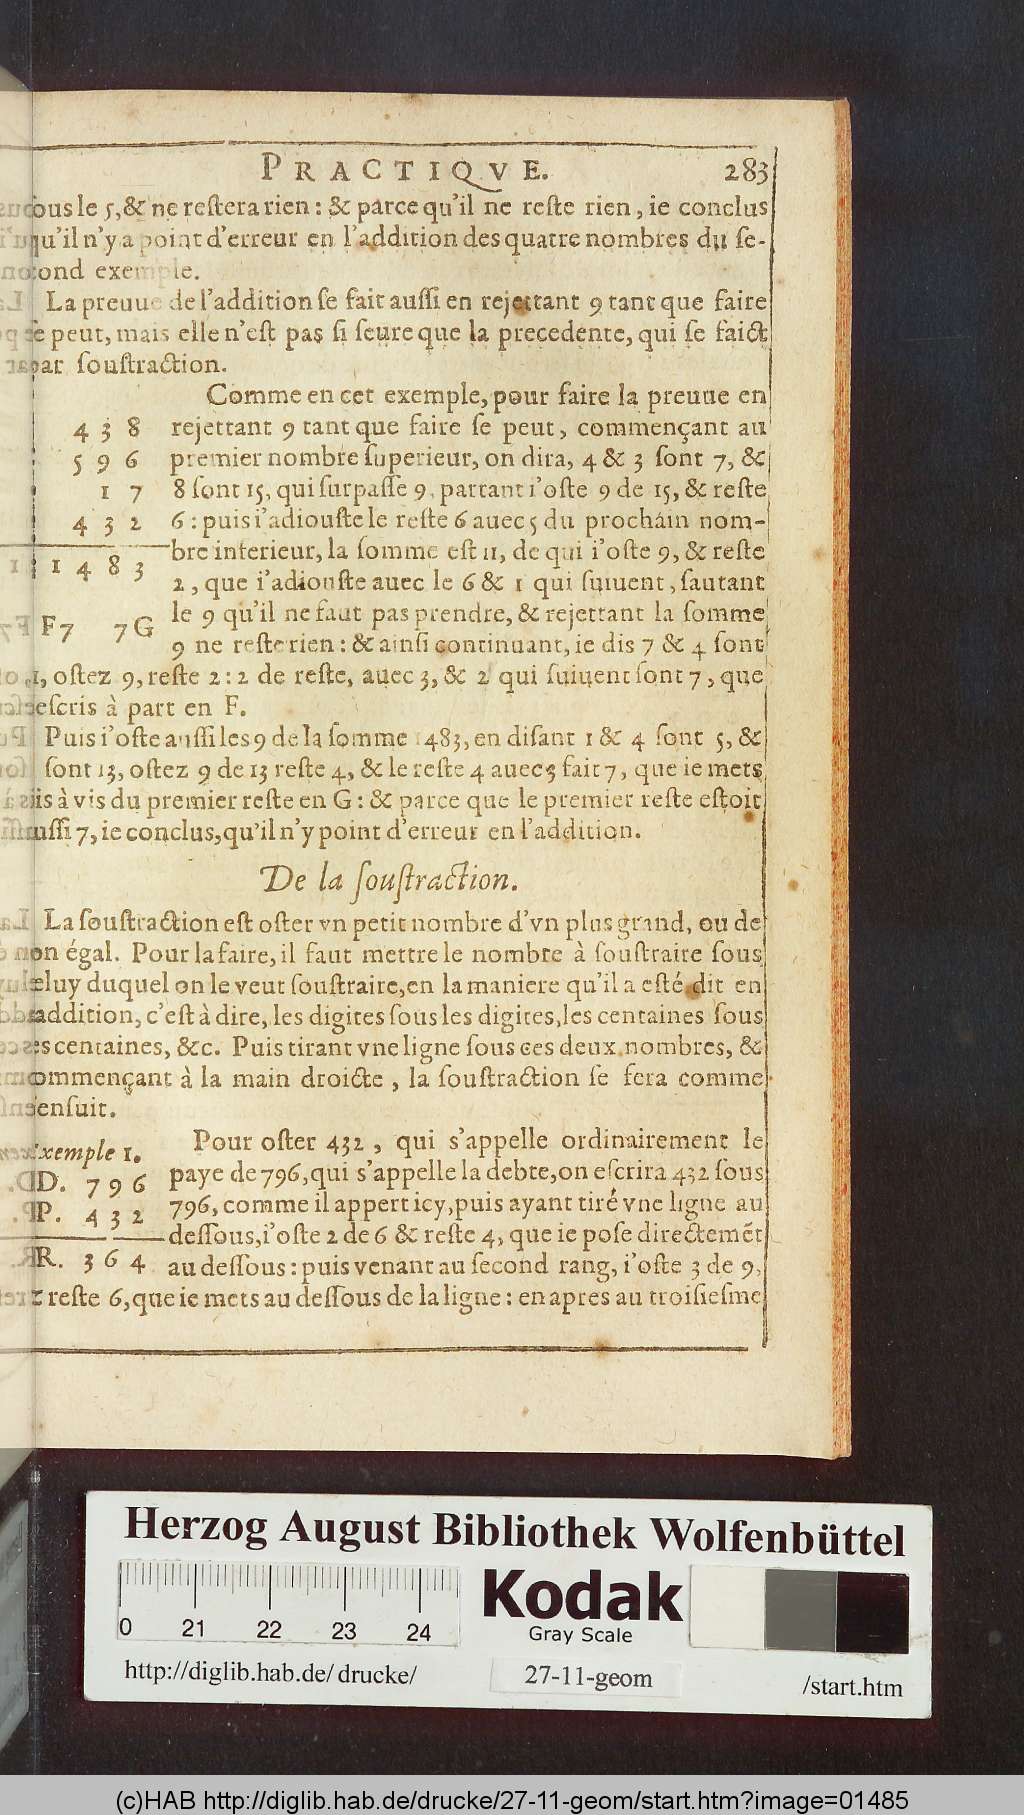 PRACTIQVE. 283
sous le 5, & ne restera rien : & parce qu'il ne reste rien, ie conclus
qu'il n'y a point d'erreur en l'addition des quatre nombres du se-
cond exemple.
La preuue de l'addition se fait aussi en rejettant 9 tant que faire
se peut, mais elle n'est pas si seure que la precedente, qui se faict
par soustraction.
Comme en cet exemple, pour faire la preuue en
4 3 8 rejettant 9 tant que faire se peut, commençant au
5 9 6 premier nombre superieur, on dira, 4 & 3 sont 7, &
1 7 8 sont 15, qui surpasse 9, partant i'oste 9 de 15, & reste
4 3 2 6 : puis i'adiouste le reste 6 auec 5 du prochain nom-
bre inferieur, la somme est 11, de qui i'oste 9, & reste
1 4 8 3 2, que i'adiouste auec le 6 & 1 qui suiuent, sautant
le 9 qu'il ne faut pas prendre, & rejettant la somme
F7 7G 9 ne reste rien : & ainsi continuant, ie dis 7 & 4 sont
11, ostez 9, reste 2 : 2 de reste, auec 3, & 2 qui suiuent sont 7, que
i'escris à part en F.
Puis i'oste aussi les 9 de la somme 1483, en disant 1 & 4 sont 5, &
sont 13, ostez 9 de 13 reste 4, & le reste 4 auec 3 fait 7, que ie mets
vis à vis du premier reste en G : & parce que le premier reste estoit
aussi 7, ie conclus, qu'il n'y point d'erreur en l'addition.
De la soustraction.
La soustraction est oster vn petit nombre d'vn plus grand, ou de
son égal. Pour la faire, il faut mettre le nombre à soustraire sous
celuy duquel on le veut soustraire, en la maniere qu'il a esté dit en
l'addition, c'est à dire, les digites sous les digites, les centaines sous
les centaines, &c. Puis tirant vne ligne sous ces deux nombres, &
commençant à la main droicte, la soustraction se fera comme
s'ensuit.
Exemple 1. Pour oster 432, qui s'appelle ordinairement le
D. 7 9 6 paye de 796, qui s'appelle la debte, on escrira 432 sous
P. 4 3 2 796, comme il appert icy, puis ayant tiré vne ligne au
dessous, i'oste 2 de 6 & reste 4, que ie pose directemẽt
R. 3 6 4 au dessous : puis venant au second rang, i'oste 3 de 9,
& reste 6, que ie mets au dessous de la ligne : en apres au troisiesme
Herzog August Bibliothek Wolfenbüttel
0 21 22 23 24
Kodak
Gray Scale
http://diglib.hab.de/drucke/ 27-11-geom /start.htm
(c)HAB http://diglib.hab.de/drucke/27-11-geom/start.htm?image=01485